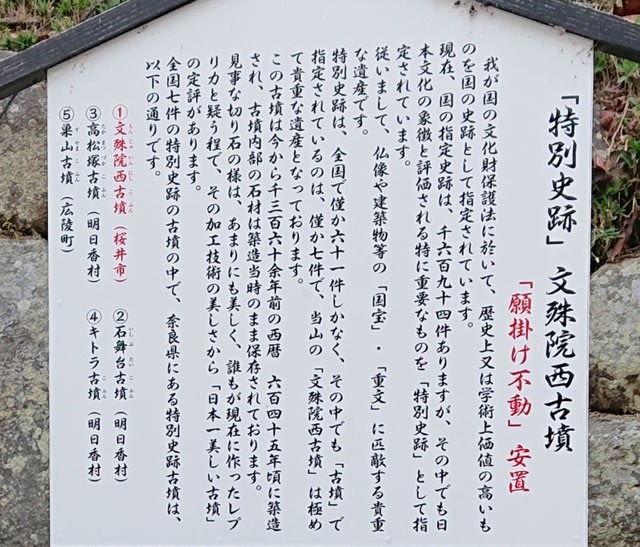 「特別史跡」文殊院西古墳
「願掛け不動」安置
我が国の文化財保護法に於いて、歴史上又は学術上価値の高いも
のを国の史跡として指定されています。
現在、国の指定史跡は、千六百九十四件ありますが、その中でも日
本文化の象徴と評価される特に重要なものを「特別史跡」として指
定されています。
従いまして、仏像や建築物等の「国宝」・「重文」に匹敵する貴重
な遺産です。
特別史跡は、全国で僅か六十一件しかなく、その中でも「古墳」で
指定されているのは、僅か七件で、当山の「文殊院西古墳」は極め
て貴重な遺産となっております。
この古墳は今から千三百六十余年前の西暦 六百四十五年頃に築造
され、古墳内部の石材は築造当時のまま保存されております。
見事な切り石の様は、あまりにも美しく、誰もが現在に作ったレプ
リカと疑う程で、その加工技術の美しさから「日本一美しい古墳」
の定評があります。
全国七件の特別史跡の古墳の中で、奈良県にある特別史跡古墳は、
以下の通りです。
①文殊院西古墳（桜井市） ②石舞台古墳（明日香村）
③高松塚古墳（明日香村） ④キトラ古墳（明日香村）
⑤巣山古墳（広陵町）